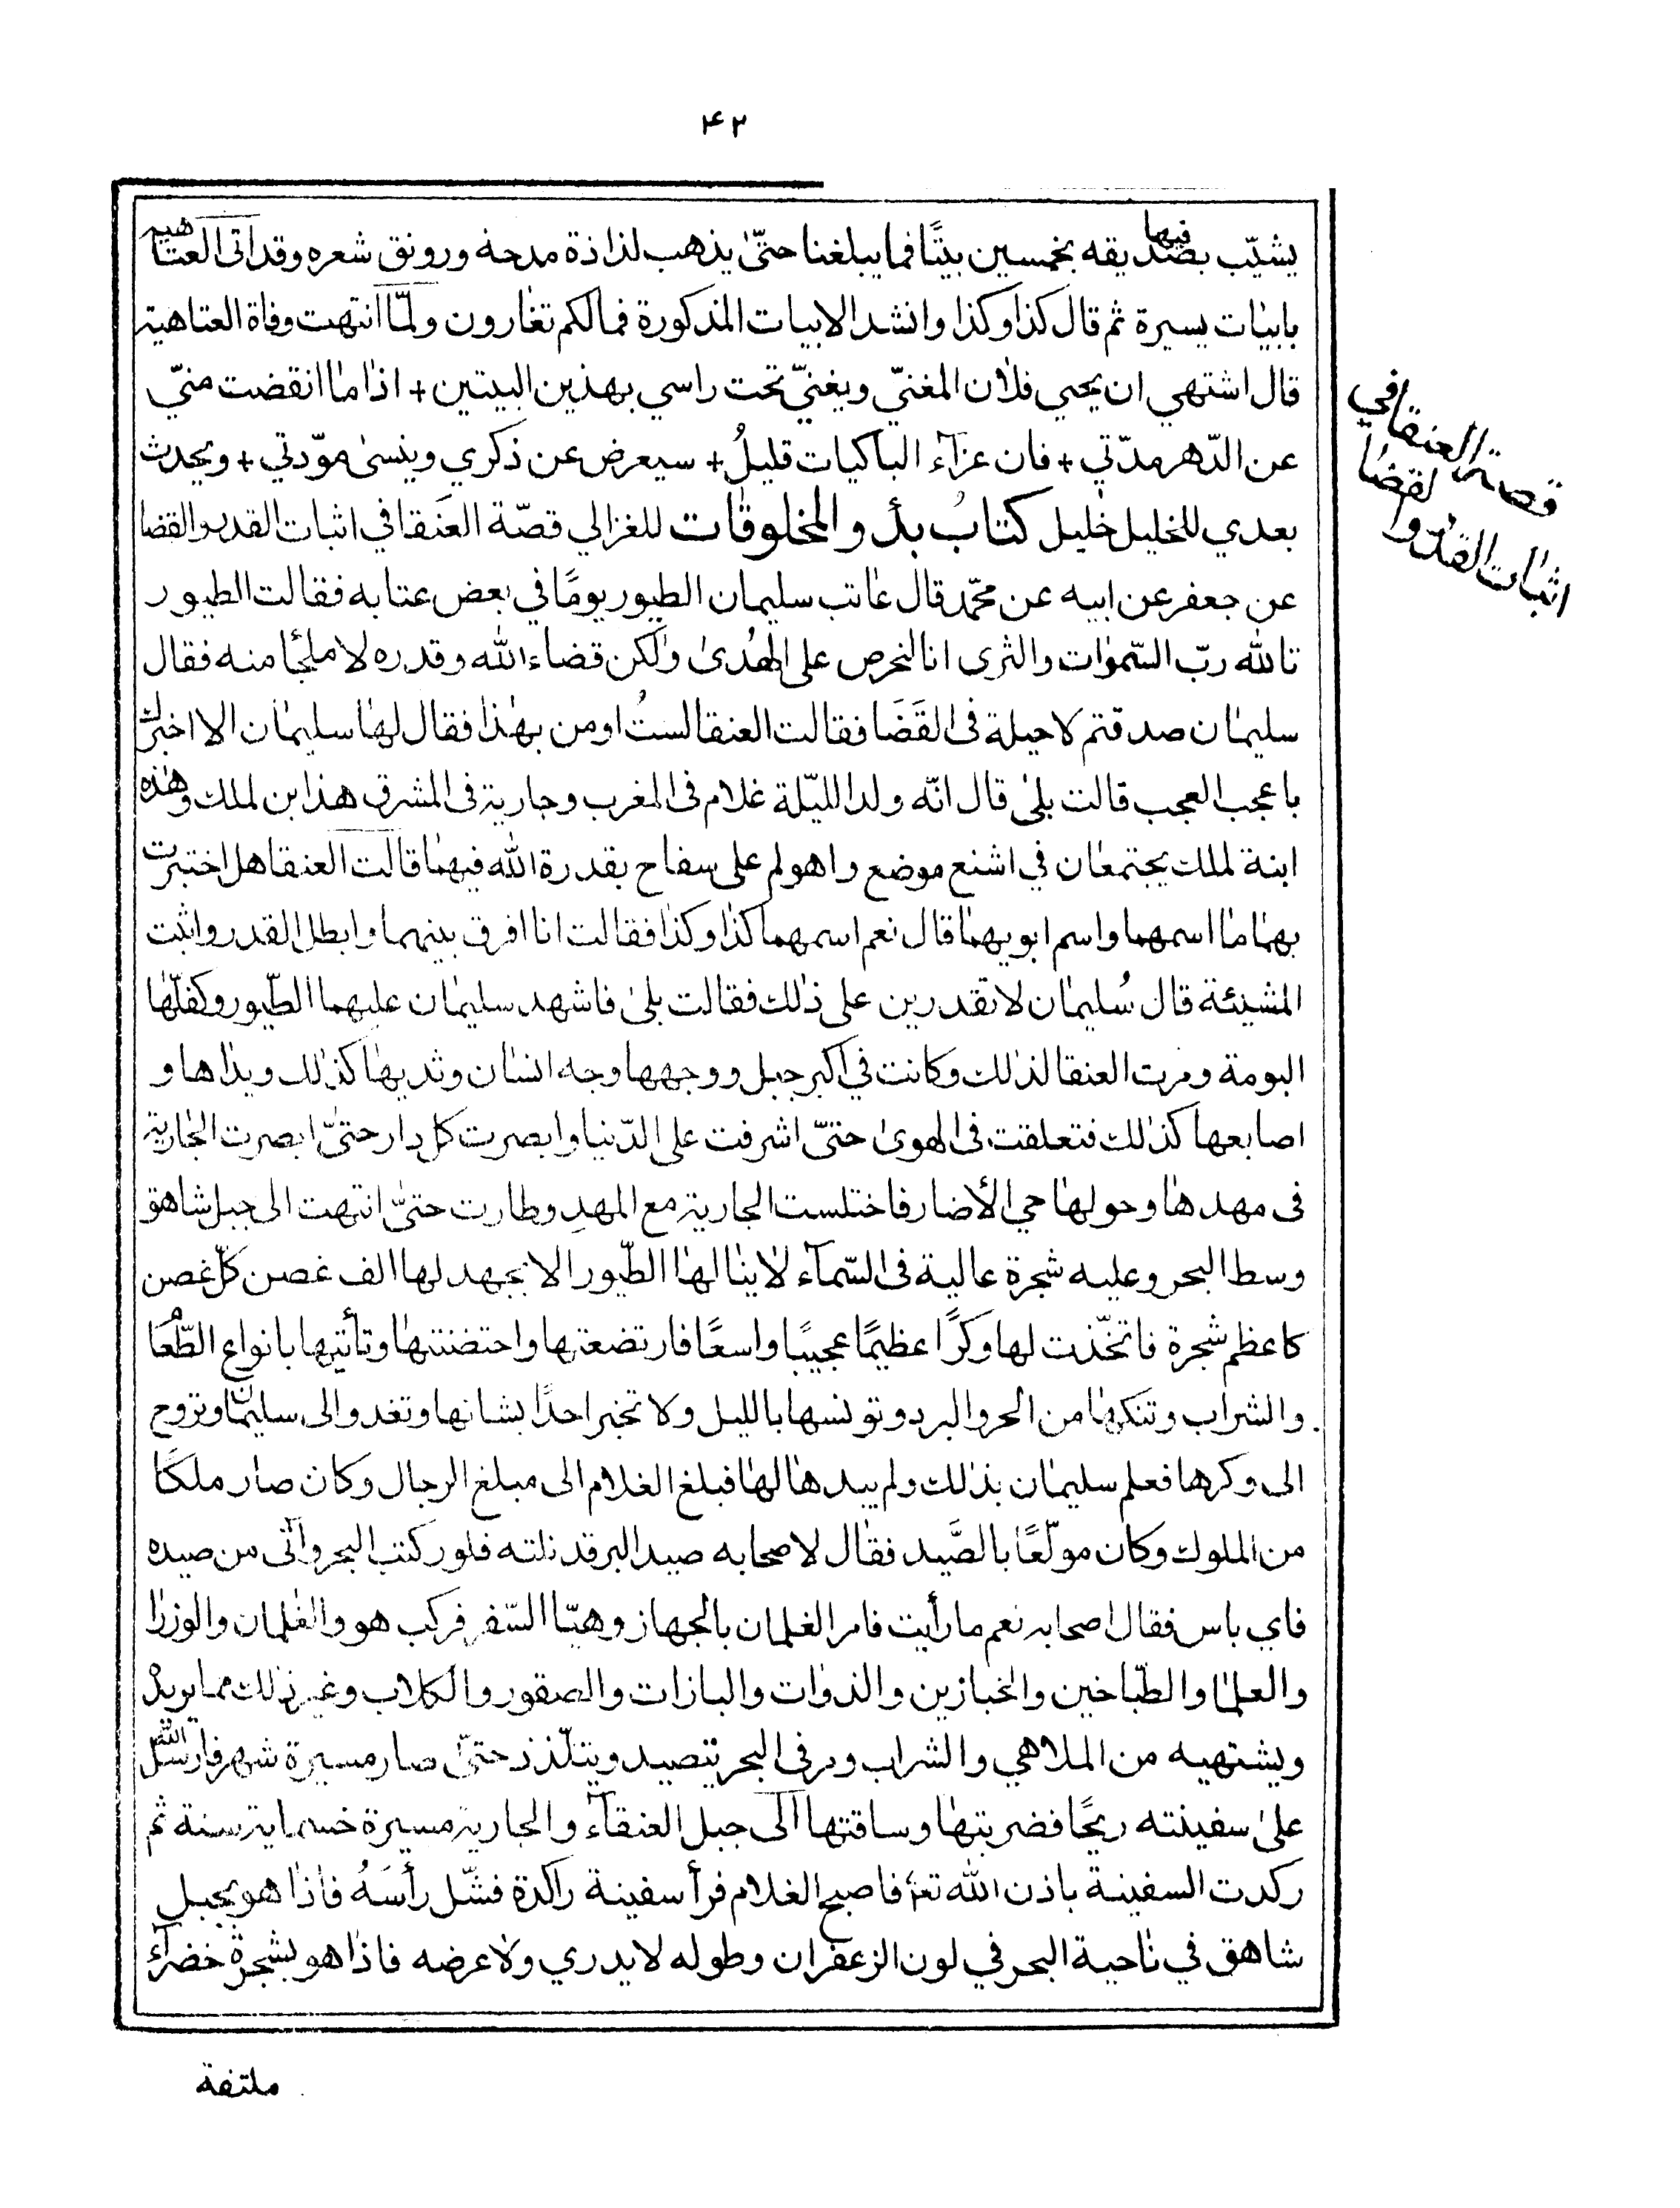 ۴۲
يشبّب فيها بصديقه بخمسين بيتًا فما يبلغنا حتّىٰ يذهب لذاذة مدحه ورونق شعره وقد اتى العتاهيه
بابيات يسيرة ثم قال كذا وكذا وانشد الابيات المذكورة فما لكم تغارون ولمّا انتهت وفاة العتاهية
قال اشتهي ان يجي فلان المغنّي ويغنيّ تحت راسي بهذين البيتين + اذا ما انقضت منيّ
عن الدّهر مدّتي + فان عزآء الباكيات قليلُ + سيعرض عن ذكري وينسىٰ مودّتي + ويحدث
بعدي للخليل خليل كتابُ بدأ والمخلوقات للغزالي قصّة العَنقا في اثبات القدر والقضا
عن جعفر عن ابيه عن محمّد قال عاتب سليمان الطيور يومًا في بعض عتابه فقالت الطيور
تالله ربّ السّمٰوات والثرى انا لنحرص على الهُدىٰ ولكن قضاء الله وقدره لا ملجأ منه فقال
سليمان صدقتم لا حيلة فى القَضَا فقالت العنقا لستُ اومن بهٰذا فقال لها سليمان الا اخبرك
باعجب العجب قالت بلىٰ قال انّه ولد الليّلة غلام فى المغرب وجارية فى المشرق هذا ابن لملك وهٰذه
ابنة لملك يجتمعان في اشنع موضع واهوله على سفاح بقدرة الله فيهما قالت العنقا هل اختبرت
بهما ما اسمهما واسم ابويهما قال نعم اسمهما كذا وكذا فقالت انا افرق بينهما وابطل القدر واثبت
المشيئة قال سُليمان لا تقدرين على ذٰلك فقالت بلىٰ فاشهد سليمان عليهما الطّيور وكفلّها
البومة ومرت العنقا لذلك وكانت في اكبر جبل ووجهها وجه انسان وثديها كذلك ويداها و
اصابعها كذلك فتعلقت فى الهوىٰ حتىّ اشرفت على الدّنيا وابصرت كل دار حتىّ ابصرت الجارية
فى مهدها وحولها حي الأضار فاختلست الجارية مع المهد وطارت حتىّٰ انتهت الى جبل شاهق
وسط البحر وعليه شجرة عالية فى السّمآء لا ينالها الطّيور الا بجهد لها الف غصن كلّ غصن
كاعظم شجرة فاتخّذت لها وكرًا عظيمًا عجيبًا واسعًا فارتضعتها واحتضنتها وتأتيها بانواع الطّعُا
والشراب وتنكها من الحر والبرد وتونسها بالليل ولا تخبر احدًا بشانها وتغدو الى سليمان وتروح
الى وكرها فعلم سليمان بذلك ولم يبدها لها فبلغ الغلام الى مبلغ الرجال وكان صار ملكًا
من الملوك وكان مولّعًا بالصَّيد فقال لاصحابه صيد البر قد نلته فلو ركبت البحر وآتى من صيده
فاي باس فقال اصحابه نعم ما رأيت فامر الغلمان بالجهاز وهيّا السّفر فركب هو والغلمان والوزرا
والعلما والطبّاخين والخبازين والذوات والبازات والصقور والكلاب وغير ذلك مما يريد
ويشتهيه من الملاهي والشراب ومر فى البحر يتصيد ويتلّذذ حتىّ صار مسيرة شهر فارسل الله
علىٰ سفينته ريحًا فضربتها وساقتها الى جبل العنقآء والجارية مسيرة خسماية سنة ثم
ركدت السفينة باذن الله تع فاصبح الغلام فرأ سفينة راكدة فشّل رأسَهُ فاذا هو بجبل
شاهق في ناحية البحر في لون الزعفران وطوله لا يدري ولا عرضه فاذا هو بشجرة خضرآء
ملتفة
قصة العنقا في
اثبات القدر و
لقضا